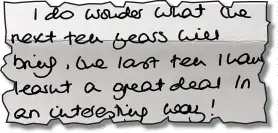 I do wonder what the
next ten years will
bring, the last ten I have
learnt a great deal in
an interesting way!